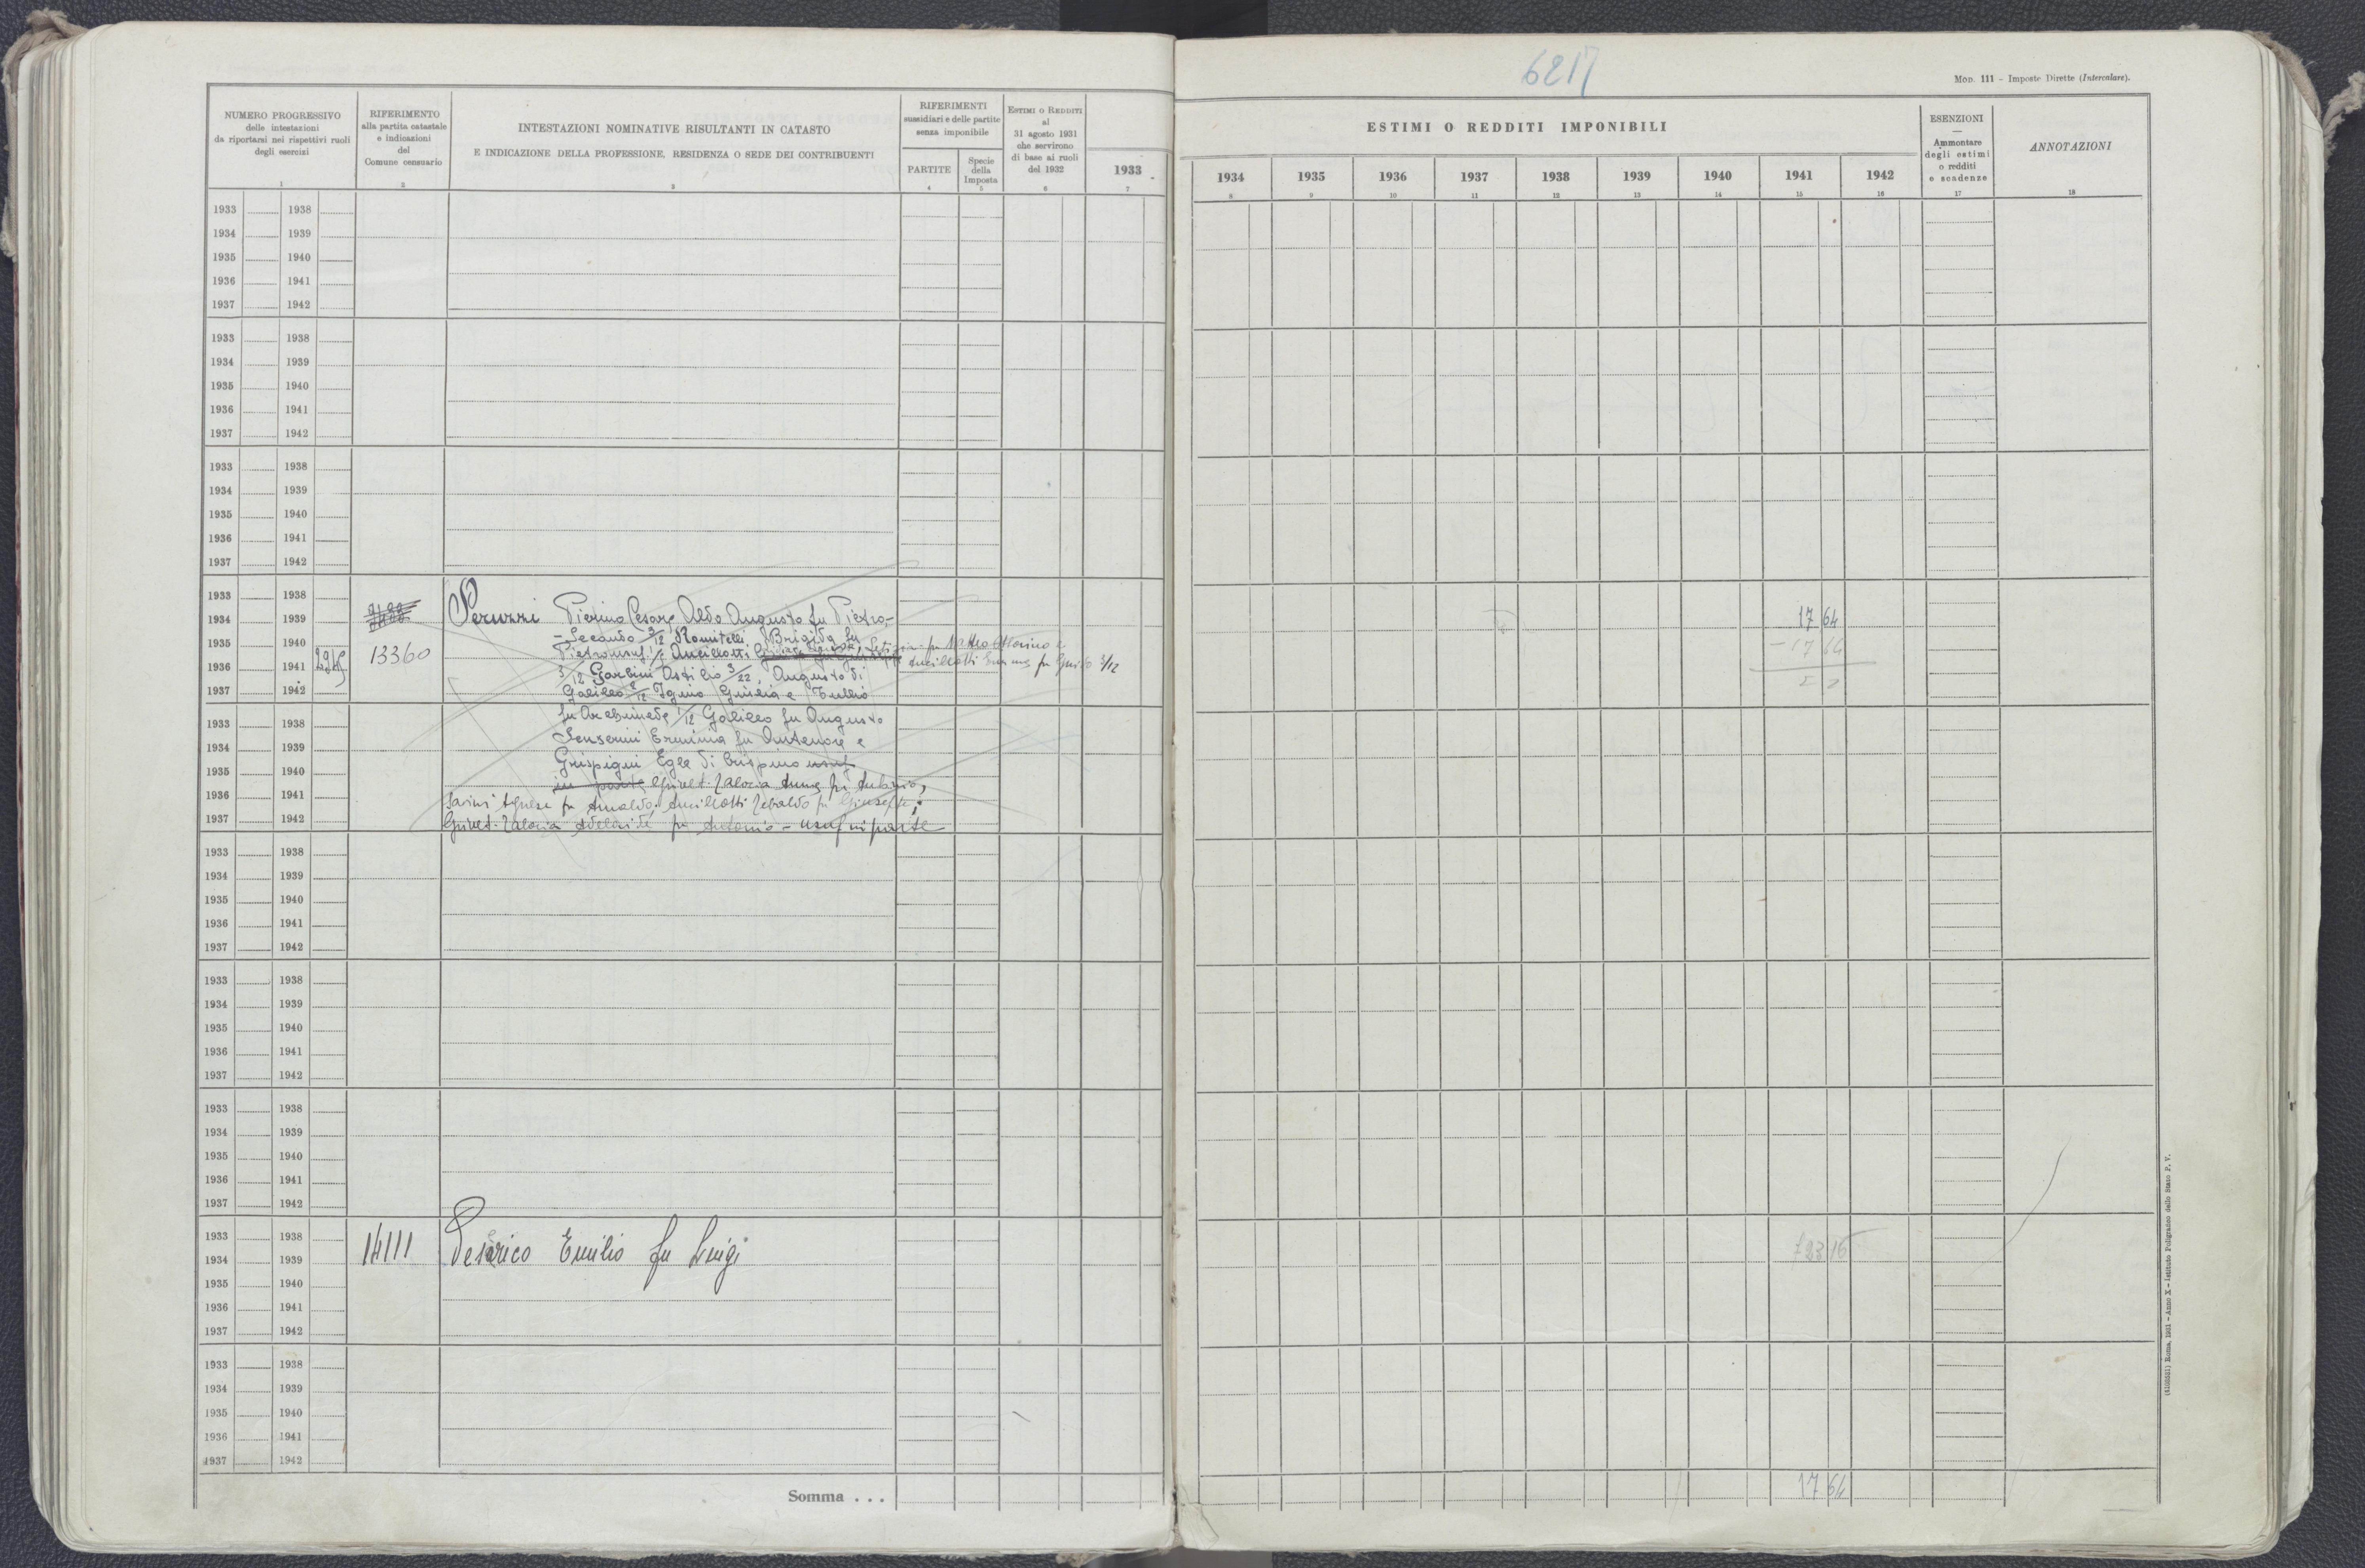 6217
MOD. 111 – Imposte Dirette (Intercalare).
NUMERO PROGRESSIVO
delle intestazioni
da riportarsi nei rispettivi ruoli
degli esercizi
1
RIFERIMENTO
alla partita catastale
e indicazioni
del
Comune censuario
2
INTESTAZIONI NOMINATIVE RISULTANTI IN CATASTO
E INDICAZIONE DELLA PROFESSIONE, RESIDENZA O SEDE DEI CONTRIBUENTI
3
RIFERIMENTI
sussidiari e delle partite
senza imponibile
PARTITE
4
Specie
della
Imposta
5
ESTIMI O REDDITI
al
31 agosto 1931
che servirono
di base ai ruoli
del 1932
6
1933
7
ESTIMI O REDDITI IMPONIBILI
1934 1935 1936 1937 1938 1939 1940 1941 1942
8 9 10 11 12 13 14 15 16
ESENZIONI
—
Ammontare
degli estimi
o redditi
e scadenze
17
ANNOTAZIONI
18
1933 1938
1934 1939
1935 1940
1936 1941
1937 1942
1933 1938
1934 1939
1935 1940
1936 1941
1937 1942
1933 1938
1934 1939
1935 1940
1936 1941
1937 1942
1933 1938
1934 1939 Peruzzi Pierino Cesare Aldo Augusto fu Pietro- 17 64
1935 1940 -Secondo 2/12 Romitelli Brigida fu - 17 64
13360 Pietro usuf. Ancillotti Letizia fu Matteo
1936 1941 Ancillotti fu Guido 3/12
3/12 Garbini Astilio 3/22, Augusto di
1937 1942 Galileo 2/12 Igino Giulia e Tullio
1933 1938 fu Archimede 1/12 Galileo fu Augusto
1934 1939 Senserini Erminia fu Antenore e
1935 1940 Grispigni Egle di Crispino usuf
in parte Grivet-Zalocia Anna fu Antonio,
1936 1941 Sarini Agnese fu Arnaldo; Ancillotti Tebaldo fu Giuseppe;
1937 1942 Grivet-Zalocia Adelaide fu Antonio - usuf in parte
1933 1938
1934 1939
1935 1940
1936 1941
1937 1942
1933 1938
1934 1939
1935 1940
1936 1941
1937 1942
1933 1938
1934 1939
1935 1940
1936 1941
1937 1942
1933 1938
1934 1939 14111 Emilio fu Luigi
1935 1940
1936 1941
1937 1942
1933 1938
1934 1939
1935 1940
1936 1941
1937 1942
Somma . . . 17 64